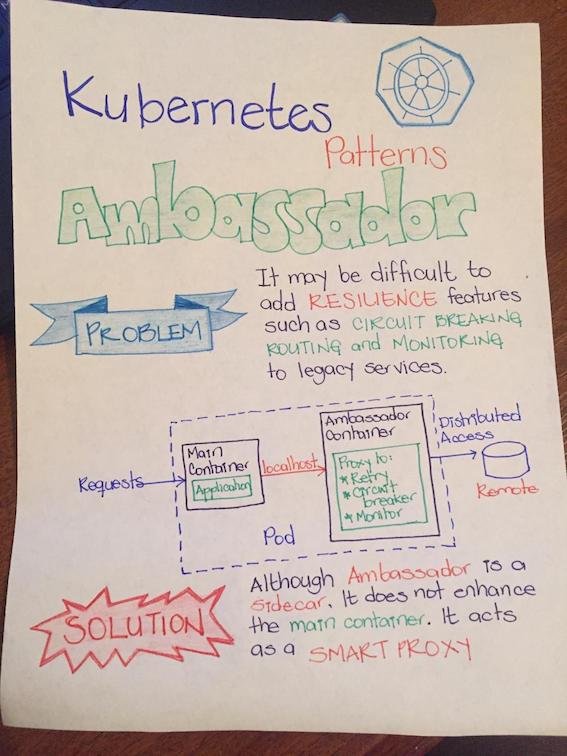 Kubernetes
Patterns
Ambassador
PROBLEM
It may be difficult to
add RESILIENCE features
such as CIRCUIT BREAKING
ROUTING and MONITORING
to legacy services.
Requests
Main
Container
Application
localhost
Ambassador
Container
Proxy to:
* Retry
* Circuit
breaker
* Monitor
Pod
Distributed
Access
Remote
SOLUTION
Although Ambassador is a
sidecar. It does not enhance
the main container. It acts
as a SMART PROXY